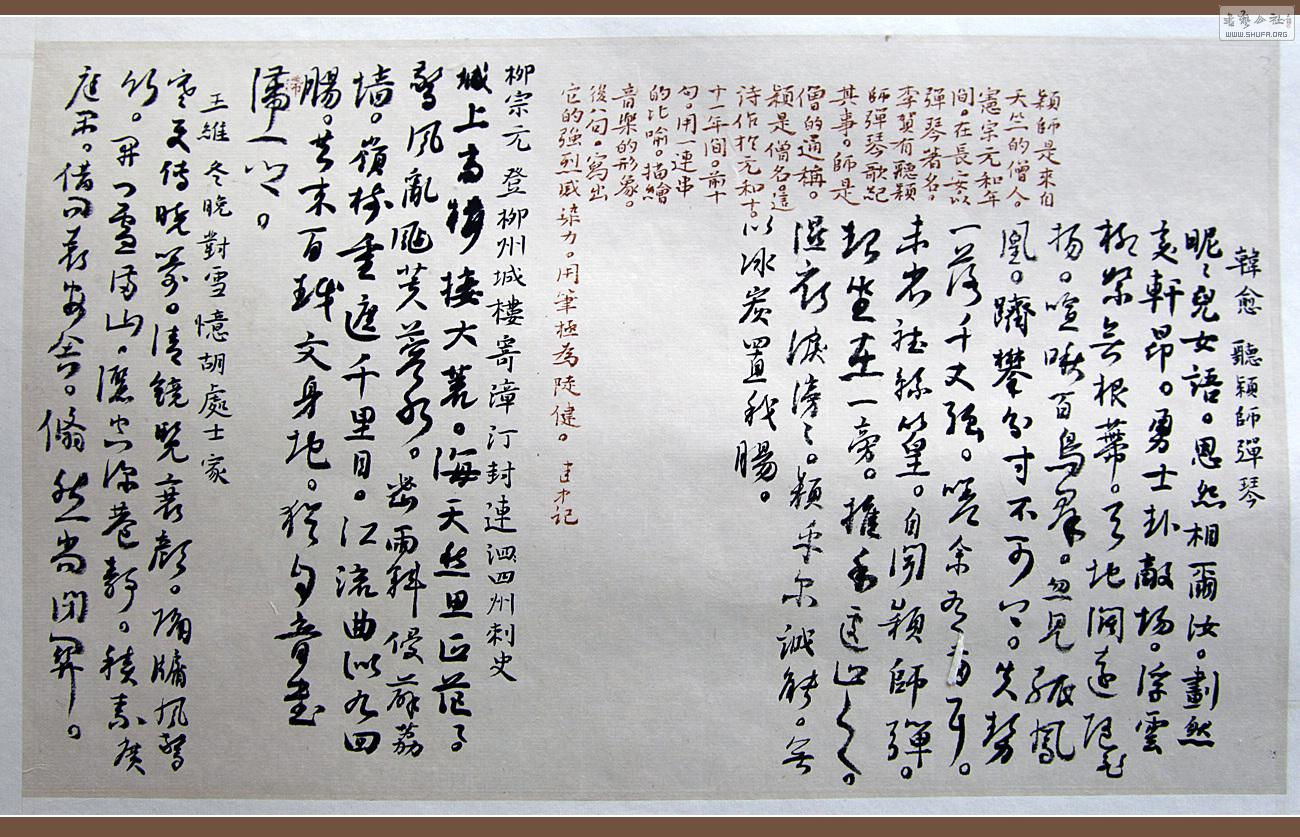 韓愈 聽穎師彈琴
昵〻兒女語。恩怨相爾汝。劃然
變軒昂。勇士赴敵場。浮雲
柳絮無根蒂。天地闊遠隨飛
揚。喧啾百鳥羣。忽見孤鳳
凰。躋攀分寸不可上。失勢
一落千丈強。嗟余有兩耳。
未省聽絲篁。自聞穎師彈。
起坐在一旁。推手遽止之。
濕衣淚滂〻。穎乎爾誠能。無
以冰炭置我腸。
穎師是來自
天竺的僧人。
憲宗元和年
間。在長安以
彈琴著名。
李賀有聽穎
師彈琴歌記
其事。師是
僧的通稱。
穎是僧名。這
詩作於元和十
十一年間。前十
句。用一連串
的比喻。描繪
音樂的形象。
後句。寫出
它的強烈感染力。用筆極為陡健。 記
柳宗元 登柳州城樓寄漳汀封連泗四州刺史
城上高樓接大荒。海天愁思正茫〻。
驚風亂颭芙蓉水。密雨斜侵薜荔
墙。嶺樹重遮千里目。江流曲似九回
腸。共來百越文身地。猶自音書
滯一鄉。
滯
王維 冬晚對雪憶胡處士家
寒更傳曉箭。清鏡覽衰顏。隔牖風驚
竹。開門雪滿山。灑空深巷靜。積素廣
庭閑。借問袁安舍。翛然尚閉關。
書藝公社
WWW.SHUFA.ORG